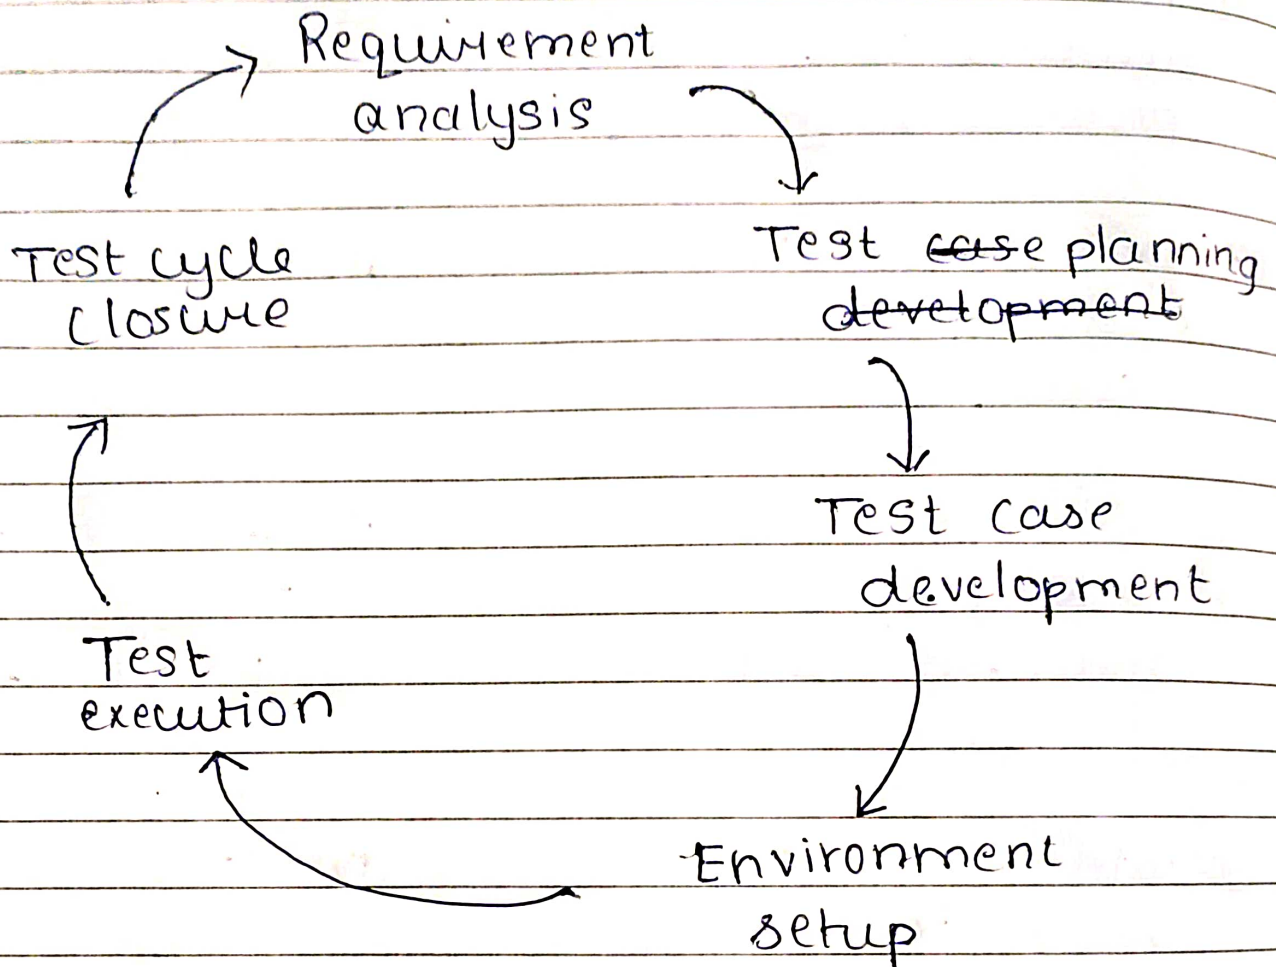 Requirement
analysis
Test case planning
development
Test case
development
Environment
setup
Test
execution
Test cycle
closure